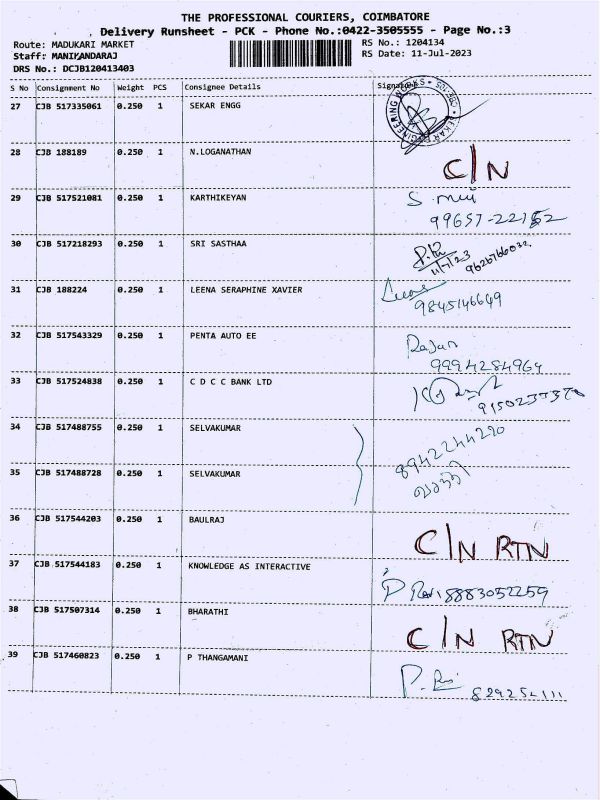 THE PROFESSIONAL COURIERS, COIMBATORE
Delivery Runsheet - PCK - Phone No.:0422-3505555 - Page No.:3
Route: MADUKARI MARKET RS No.: 1204134
Staff: MANIKANDARAJ RS Date: 11-Jul-2023
DRS No.: DCJB120413403
S No Consignment No Weight PCS Consignee Details Signature
27 CJB 517335061 0.250 1 SEKAR ENGG
28 CJB 188189 0.250 1 N.LOGANATHAN C/N
29 CJB 517521081 0.250 1 KARTHIKEYAN S.
99657-22152
30 CJB 517218293 0.250 1 SRI SASTHAA
11/7/23 9626766032
31 CJB 188224 0.250 1 LEENA SERAPHINE XAVIER Leena
9845146649
32 CJB 517543329 0.250 1 PENTA AUTO EE Rajan
9994284964
33 CJB 517524838 0.250 1 C D C C BANK LTD
34 CJB 517488755 0.250 1 SELVAKUMAR 8942244220
35 CJB 517488728 0.250 1 SELVAKUMAR
36 CJB 517544203 0.250 1 BAULRAJ C/N RTN
37 CJB 517544183 0.250 1 KNOWLEDGE AS INTERACTIVE 8883052259
38 CJB 517507314 0.250 1 BHARATHI C/N RTN
39 CJB 517460823 0.250 1 P THANGAMANI